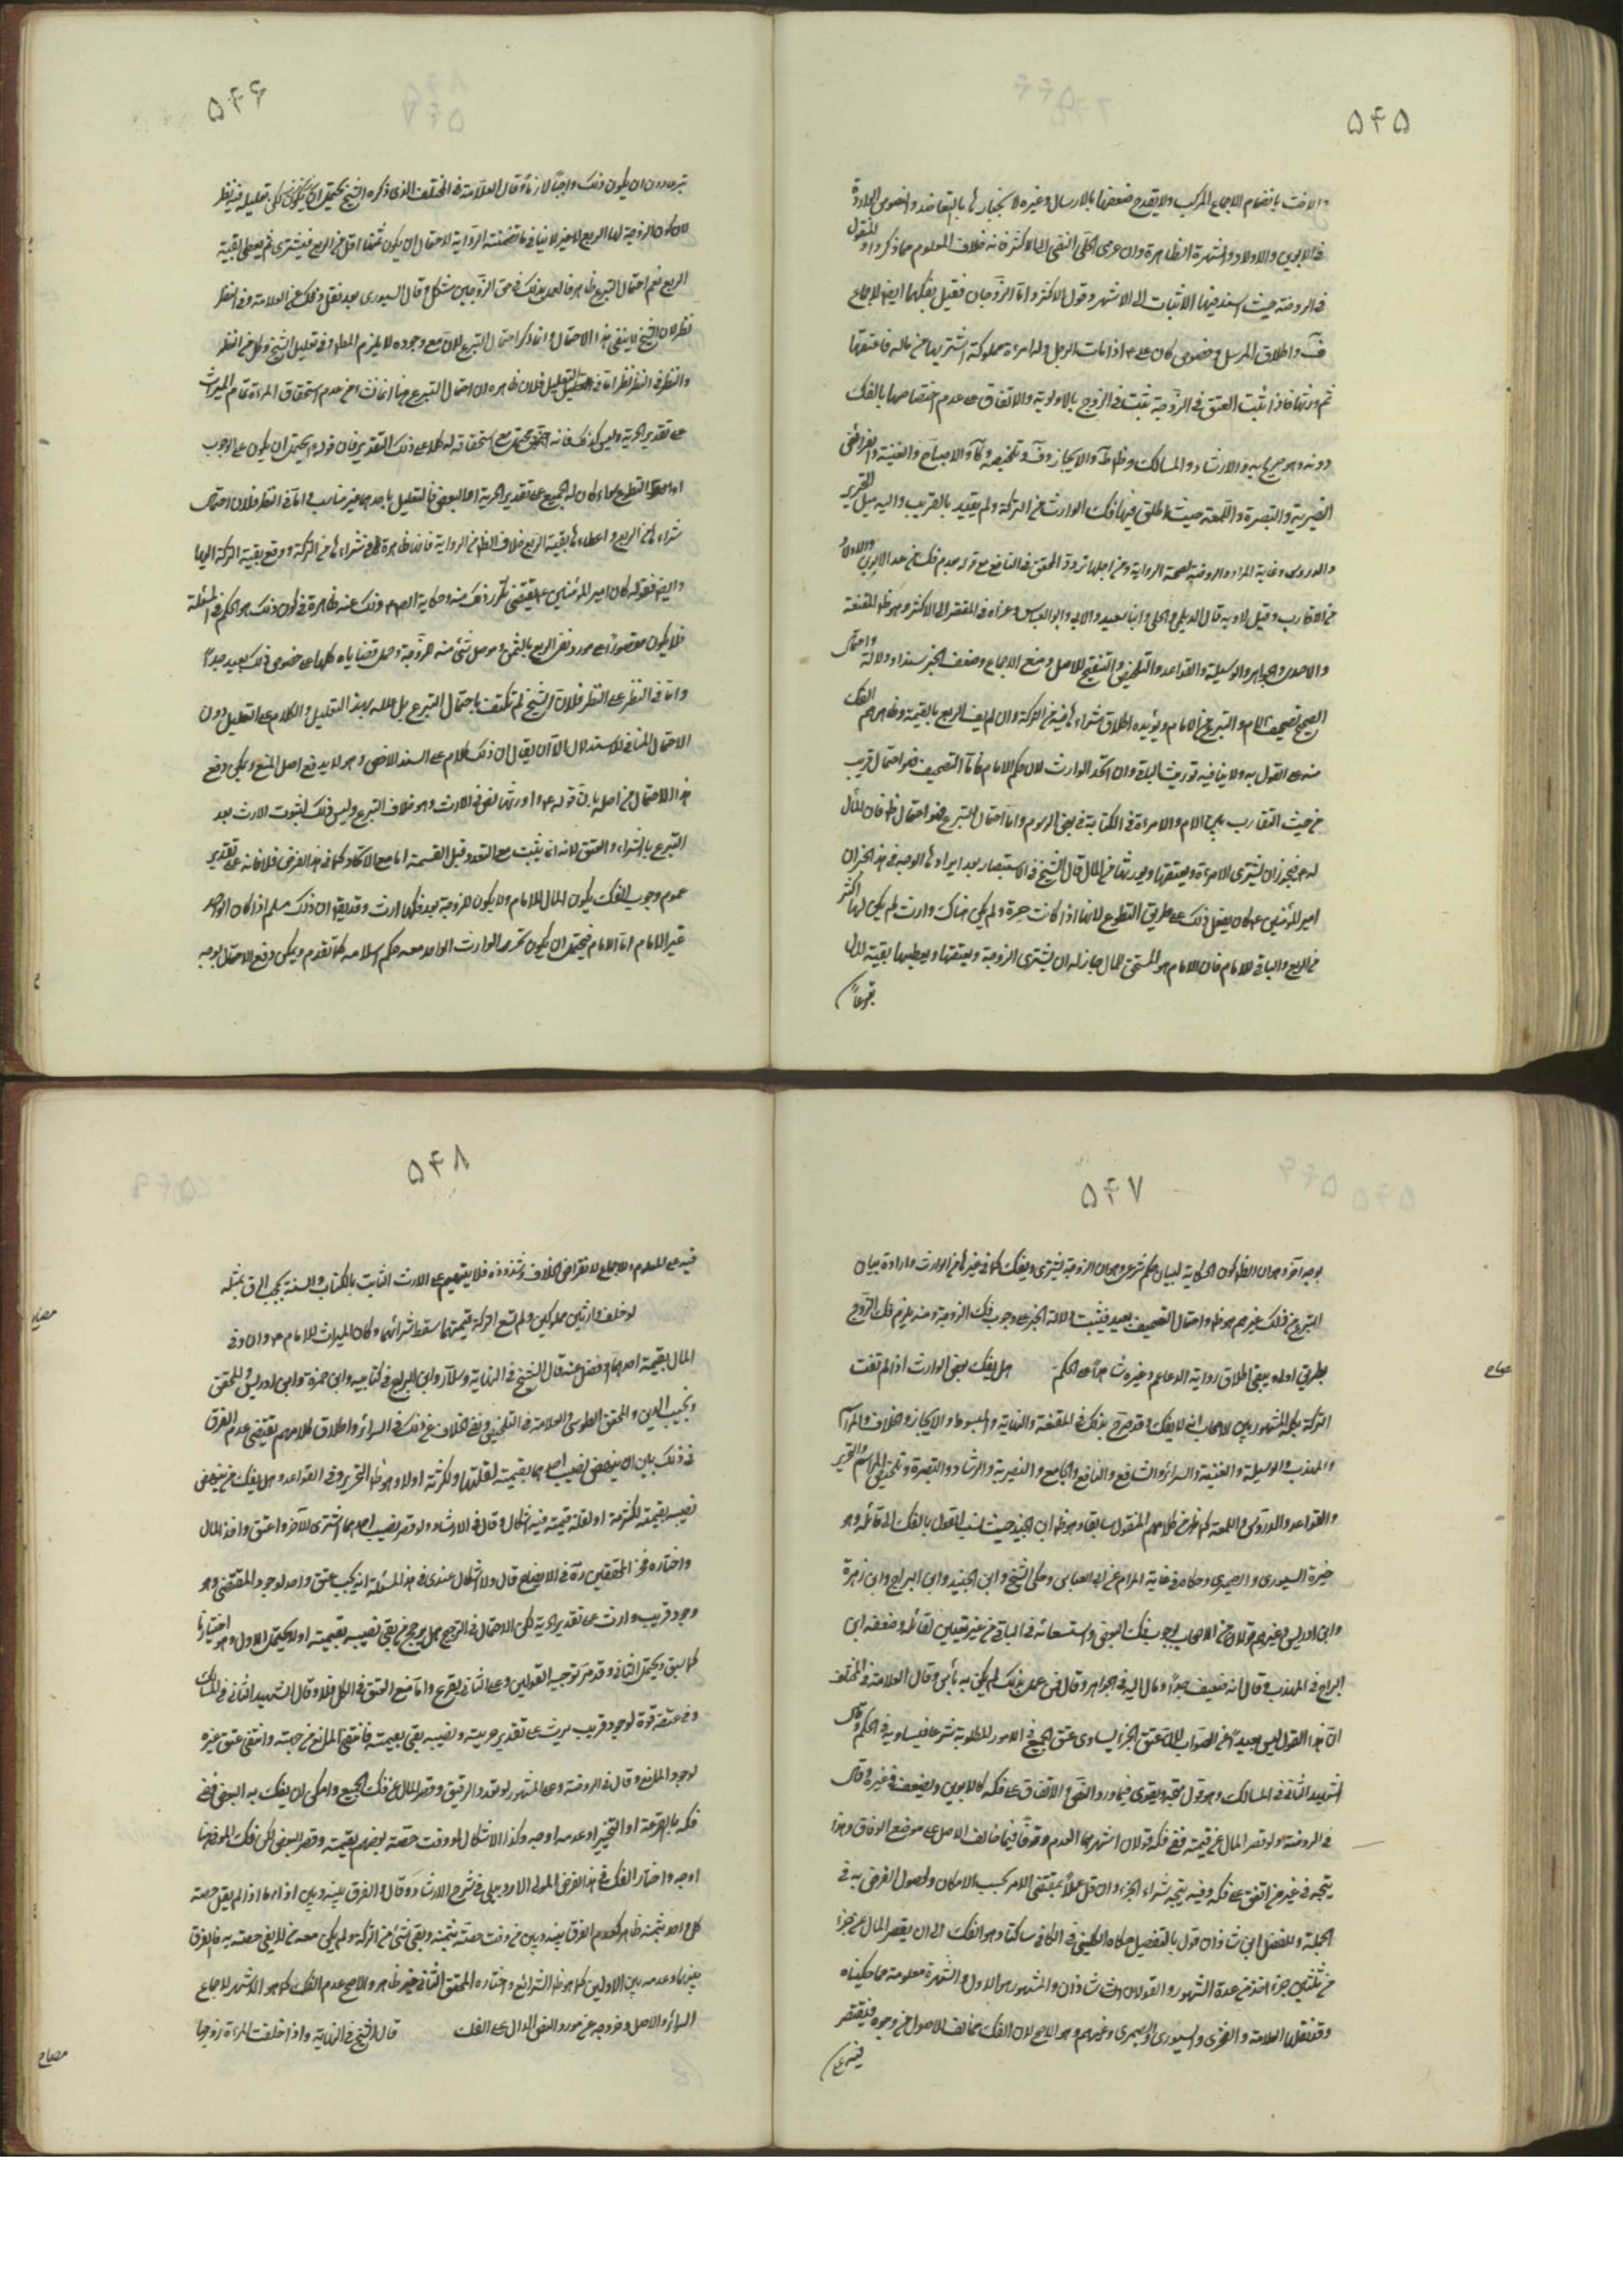 ۵۴۵
والاخت بانضمام الاجماع المركب ولا يقدح ضعفها بالارسال وغيره لانجبارها بالتعاضد والنصوص الواردة
في الابوين والاولاد والشهرة الظاهرة وان عزى الحلي النفي الى الاكثر فانه خلاف المعلوم مما ذكروا والمنقول
في الروضة حيث اسند فيها الاثبات الى الاشهر وقول الاكثر واما الزوجان فقيل بفكهما ايضا لاجماع
واطلاق المرسل وخصوص كان على ع اذا مات الرجل وله امرأة مملوكة اشتريها من ماله فاعتقها
ثم ورثها فاذا ثبت العتق في الزوجة ثبت في الزوج بالاولوية والاتفاق على عدم اختصاصها بالفك
دونه وهو صريح يه والارشاد والمسالك والايجاز وتلخيصه والاصباح والغنية والفرائض
النصيرية والتبصرة واللمعة حيث اطلق فيها فك الوارث من التركة ولم يقيد بالقريب واليه ميل التحرير
والدروس وغاية المراد والروضة لصحة الرواية ومن اجلها تردد المحقق في النافع مع قوله بعدم فك من عدا الابوين والاولاد
من الاقارب وقيل لا وبه قال الديلمي والحلي وابنا سعيد والابي وابو العباس وعزاه في المقتصر الى الاكثر وهو ظ المقنعة
والجواهر والوسيلة والقواعد والتلخيص والتنقيح للاصل ومنع الاجماع وضعف الخبر سندا ودلالة واحتمال
الصحيح تصحيف الام والتبرع من الامام ويؤيده اطلاق شراءها فيه من التركة وان لم يف الربع بالقيمة وظاهرهم الفك
منه على القول به ولا ينافيه توريث الباقي وان اتحد الوارث لان حكم الامام واما التصحيف فهو احتمال قريب
من حيث التقارب بين الام والامرأة في الكتابة في بعض الرسوم واما احتمال التبرع فهو احتمال ظ فان المال
له ع فيجوز ان يشترى الامرأة ويعتقها ويورثها من المال قال الشيخ في الاستبصار بعد ايرادها الوجه في هذا الخبر ان
امير المؤمنين ع كان يفعل ذلك على طريق التطوع لانها اذا كانت حرة ولم يكن هناك وارث لم يكن لها اكثر
من الربع والباقي للامام فان الامام هو المستحق للمال جاز له ان يشترى الزوجة ويعتقها ويعطيها بقية المال
تبرعاً
۵۴۶
تبرعا دون ان يكون ذلك واجباً لازماً وقال العلامة في المختلف الذي ذكره الشيخ محتمل لكن تعليله فيه نظر
لان كون الزوجة لها الربع لا غير لا ينافي ما تضمنته الرواية لاحتمال ان يكون ثمنها اقل من الربع فيشترى ثم يعطى بقية
الربع نعم احتمال التبرع ظاهر فالعمل بذلك في حق الزوجين مشكل وقال السيورى بعد نقل ذلك عن العلامة وفي النظر
نظر لان الشيخ لا ينفى هذا الاحتمال وانما ذكر احتمال التبرع لان مع وجوده لا يلزم المطلوب وفي تعليل الشيخ وكل من النظر
والنظر في النظر نظر اما في التعليل فلان ظاهره ان احتمال التبرع هنا انما نشأ من عدم استحقاق المرأة تمام الميراث
على تقدير الحرية وليس كذلك فانه محتمل مع استحقاقه له كلا على ذلك التقدير فان قوله ع يحتمل ان يكون على الوجوب
او التطوع سواء كان له الجميع على تقدير الحرية او البعض فالتعليل باحدهما غير مناسب واما في النظر فلان احتمال
شراءها من الربع واعطاءها بقية الربع خلاف الظ من الرواية فانها ظاهرة في شراءها من التركة ودفع بقية التركة اليها
وايضا فقوله كان امير المؤمنين ع يقتضى تكرر ذلك منه وحكاية الصادق ع ذلك عنه ظاهرة في كون ذلك هو الحكم في المسئلة
فلا يكون مقصوراً على مورد نقص الربع بالثمن وموصل شئ منه للزوجة وحمل قضاياه كلها على خصوص ذلك بعيد جداً
واما في النظر على النظر فلان الشيخ لم يكتف باحتمال التبرع بل علله بهذا التعليل والكلام على التعليل دون
الاحتمال المنافي للاستدلال الا ان يقال ان ذلك كلام على السند الاخص وهو لا يدفع اصل المنع ويمكن دفع
هذا الاحتمال من اصله بان قوله ع اورثها نص في الارث وهو خلاف التبرع وليس ذلك لثبوت الارث بعد
التبرع بالشراء والعتق لانه انما يثبت مع التعدد قبل القسمة اما مع الاتحاد كما في هذا الفرض فلا فانه على تقدير
عموم وجوب الفك يكون المال للامام ولا يكون للزوجة بعد فكها ارث وقد يقال ان ذلك مسلم اذا كان الواحد
غير الامام اما الامام فيحتمل ان يكون تحرر الوارث الواحد معه حكم اسلامه كما تقدم ويمكن دفع الاحتمال بوجه
۵۴۷
بوجه آخر وهو ان الظ كون الحكاية لبيان حكم شرعى وهو ان الزوجة يشترى ويفك كما في غيرها من الوارث وارادة بيان
التبرع من ذلك غير مفهوم واحتمال التصحيف بعيد فيثبت دلالة الخبر على وجوب فك الزوجة ومنه يلزم فك الزوج
بطريق اولى ويبقى اطلاق رواية الدعائم وغيره شاهداً على الحكم هل يفك بعض الوارث اذا لم تف
التركة بكله المشهور بين الاصحاب انه لا يفك وقد صرح بذلك في المقنعة والنهاية والمبسوط والايجاز والخلاف والمراسم
والمهذب والوسيلة والغنية والسرائر والشرائع والنافع والجامع والنصيرية والارشاد والتبصرة وتلخيص المرام والتحرير
والقواعد والدروس واللمعة كما ظهر من كلامهم المنقول سابقا وهو ظ ابن الجنيد حيث نسب القول بالفك الى قائله وهو
خيرة السيورى والصيمرى وحكاه في غاية المرام عن ابى العباس وحكى الشيخ وابن الجنيد وابن البراج وابن زهرة
وابن ادريس وغيرهم قولا من الاصحاب بوجوب فك البعض واستسعائه في الباقي من غير تعيين لقائله وضعفه ابن
البراج في المهذب وقال انه ضعيف جداً ومال اليه في الجواهر وقال فمن عمل بذلك لم يكن به بأس وقال العلامة في المختلف
ان هذا القول ليس بعيداً من الصواب لان عتق الجزء يساوى عتق الجميع في الامور المطلوبة شرعا فيساويه في الحكم وقال
الشهيد الثاني في المسالك وهو قول متجه ويقوى فيما ورد النص او الاتفاق على فكه كالابوين ويضعف في غيره وقال
في الروضة ولو قصر المال عن قيمته ففي فكه قولان اشهرهما العدم وقوفا فيما خالف الاصل على موضع الوفاق وهذا
يتجه في غير من اتفق على فكه وفيه يتجه شراء الجزء وان قل عملاً بمقتضى الامر بحسب الامكان ولحصول الغرض به في
الجملة وللفضل بن شاذان قول بالتفصيل حكاه الكليني في الكافي ساكتا وهو الفك الى ان يقصر المال عن جزء
من ثلثين جزء اخذ من عدة الشهور والقولان شاذان والمشهور هو الاول والشهرة معلومة مما حكيناه
وقد نقلها العلامة والفخرى والسيورى والصيمرى وغيرهم وهو الاصح لان الفك مخالف للاصول من وجوه فيقتصر
فيه على
صباح
۵۴۸
فيه على المعلوم والاجماع لانقراض الخلاف وشذوذه فلا يتهجم على الارث الثابت بالكتاب والسنة بمثله
لو خلف وارثين مملوكين ولم تسع التركة قيمتهما سقط شرائهما وكان الميراث للامام ع وان وفى
المال بقيمة احدهما وفضل عنه قال الشيخ في النهاية وسلار وابن البراج في كتابيه وابن حمزة وابن ادريس والمحقق
ونجيب الدين والمحقق الطوسي والعلامة في التلخيص ونفى الخلاف عن ذلك في السرائر واطلاق كلامهم يقتضى عدم الفرق
في ذلك بين ان ينهض نصيب احدهما بقيمته لقلتها ولكثرته اولا وهو ظ التحرير وفي القواعد وهل يفك من ينهض
نصيبه بقيمته لكثرته او لقلة قيمته فيه اشكال وقال في الارشاد ولو قصر نصيب احدهما اشترى الآخر واعتق واخذ المال
واختاره فخر المحققين في الايضاح قال ولا اشكال عندى في هذه المسئلة انه يجب عتق واحد لوجود المقتضى وهو
وجود قريب وارث على تقدير الحرية لكن الاحتمال في الترجيح هل يرجح من يفى نصيبه بقيمته اولا يحتمل الاول وهو اختيارنا
كما سبق ويحتمل الثاني وقد مر توجيه القولين وعلى الثاني يقرع واما منع العتق في الكل فلا وقال الشهيد الثاني في المسالك
وفي عتقه قوة لوجود قريب يرث على تقدير حريته ونصيبه يفى بقيمته فانتفى المانع من جهته وانتفى عتق غيره
لوجود المانع وقال في الروضة وعلى المشهور لو تعدد الرقيق وقصر المال عن فك الجميع وامكن ان يفك به البعض ففي
فكه بالقرعة او التخيير او عدمه اوجه وكذا الاشكال لو وفت حصة بعضهم بقيمته وقصر البعض لكن فك الموفى هنا
اوجه واختار الفك في هذا الفرض المولى الاردبيلى في شرح الارشاد وقال والفرق بينه وبين اذا لم يقبل حصة
كل واحد بثمنه ظاهر كعدم الفرق بينه وبين من وفت حصته بثمنه وبقى شئ من التركة ولم يكن معه من لا يفى حصته به فالفرق
بينهما وعدمه بين الاولين كما هو ظ الشرائع واختاره المحقق الثاني غير ظاهر والاصح عدم الفك كما هو الاشهر لاجماع
السرائر والاصل وخروجه عن مورد النص الدال على الفك قال الشيخ في النهاية واذا خلفت المرأة زوجها
مصباح
مصباح